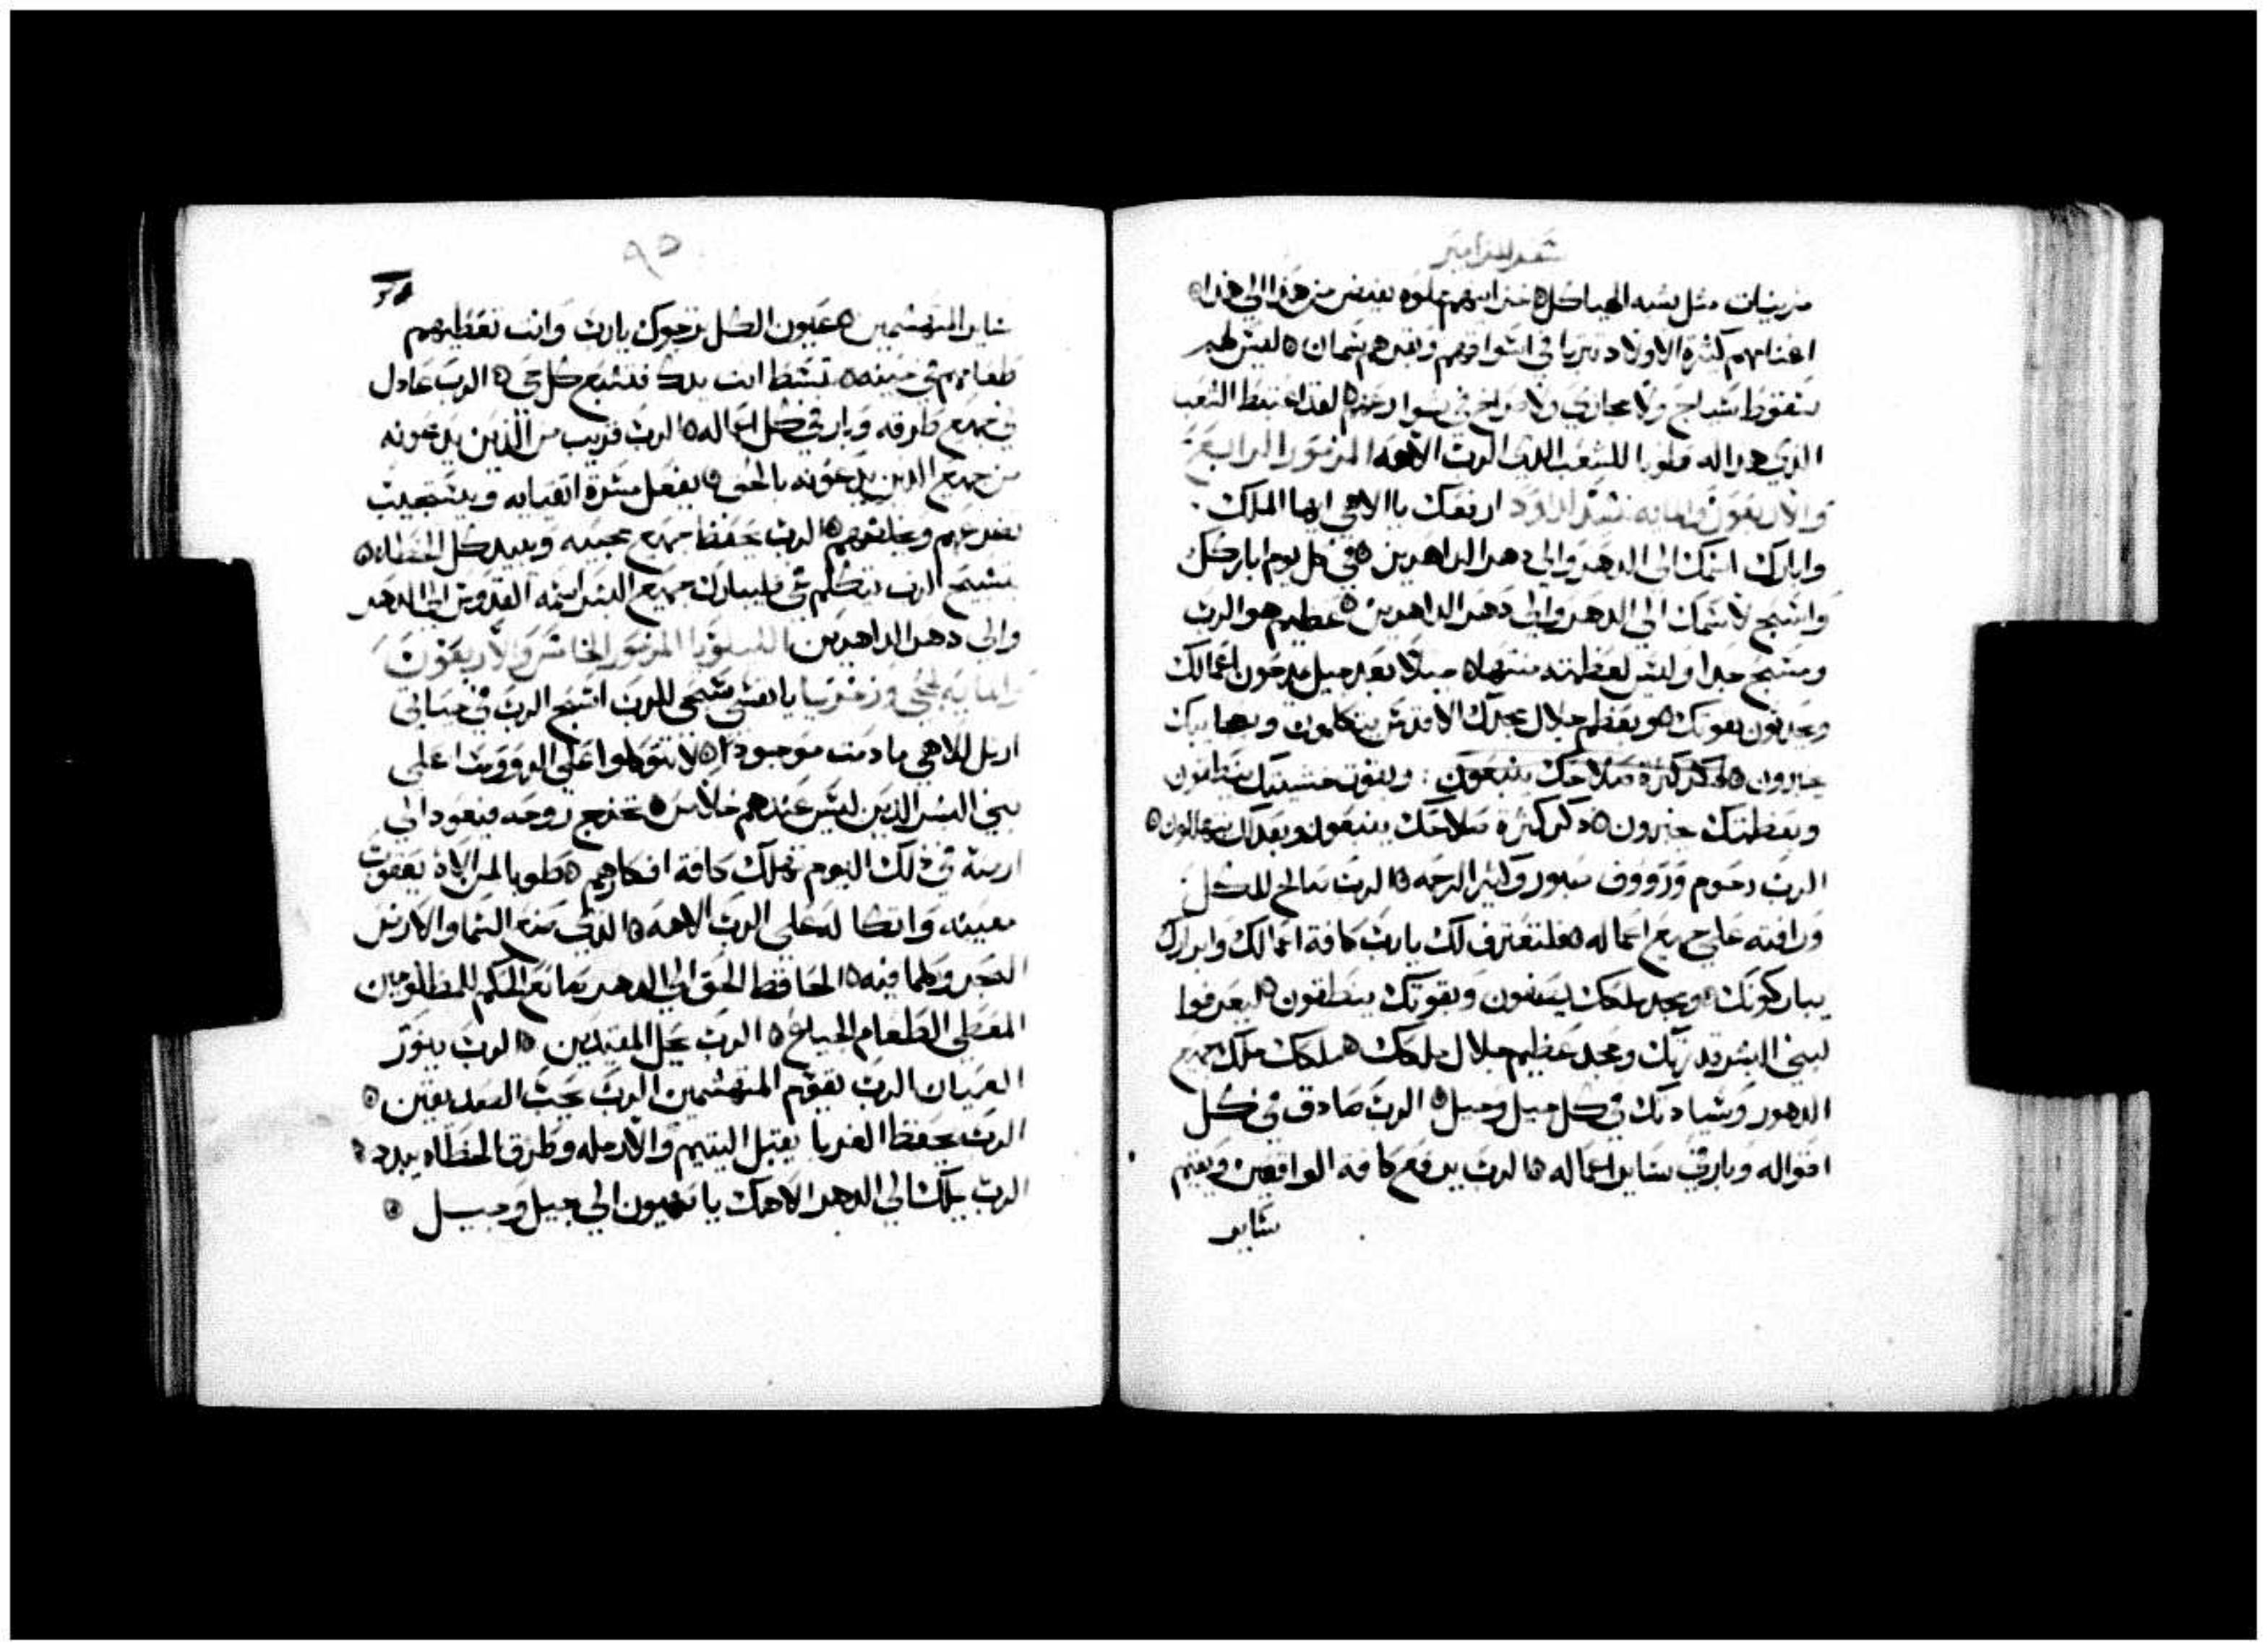 سفر المزامير
مزينات مثل شبه الهياكل خزاينهم مملوه تفيض من هذا الي هذا
اغنامهم كثيرة الاولاد تتربا في اسواقهم وبقرهم سمان ليس لهم
سقوط سياج ولا مجازي ولا صراخ في شوارعهم لقد اغتبط الشعب
الذي هذا له طوبا للشعب الذي الرب الاهه المزمور الرابع
والاربعون والمايه تسبحة لداود ارفعك يا الاهي ايها الملك
وابارك اسمك الي الدهر والي دهر الداهرين في كل يوم اباركك
واسبح لاسمك الي الدهر والي دهر الداهرين عظيم هو الرب
ومسبح جدا وليس لعظمته منتها جيلا بعد جيل يمدحون اعمالك
ويخبرون بقوتك وبعظم جلال مجدك الاقدس يتكلمون وبعجايبك
يخبرون ذكر كثرة صلاحك ينبعون وبقوة خشيتك ينطقون
وبعظمتك يخبرون ذكر كثرة صلاحك ينبعون وبعدلك يتهللون
الرب رحوم ورووف صبور وكثير الرحمه الرب صالح للكل
ورافته علي جميع اعماله فلتعترف لك يارب كافة اعمالك وابرارك
يباركونك وبمجد ملكك يصفون وبقوتك ينطقون ليعرفوا
لبني البشر قدرتك ومجد عظيم جلال ملكك ملكك ملك جميع
الدهور وسيادتك في كل جيل وجيل الرب صادق في كل
اقواله وبار في ساير اعماله الرب يرفع كافة الواقعين ويقيم
ساير
٩٥
ساير المتهشمين عيون الكل ترجوك يارب وانت تعطيهم
طعامهم في حينه تبسط انت يدك فتشبع كل حي الرب عادل
في جميع طرقه وبار في كل اعماله الرب قريب من الذين يدعونه
من جميع الذين يدعونه بالحق يفعل مسرة اتقيايه ويستجيب
تضرعهم ويخلصهم الرب يحفظ جميع محبيه ويبيد كل الخطاه
بتسبيح الرب يتكلم فمي فليبارك جميع البشر اسمه القدوس الي الدهر
والي دهر الداهرين الليلويا المزمور الخامس والاربعون
والمايه لحجي وزخريا يا نفسي سبحي للرب اسبح الرب في حياتي
ارتل لالاهي ما دمت موجودا لا تتوكلوا علي الرووسا علي
بني البشر الذين ليس عندهم خلاص تخرج روحه فيعود الي
ارضه في ذلك اليوم تهلك كافة افكارهم طوبا لمن الاه يعقوب
معينه واتكاله علي الرب الاهه الذي صنع السما والارض
البحر وكلما فيه الحافظ الحق الي الدهر صانع الحكم للمظلومين
المعطي الطعام للجياع الرب يحل المقيدين الرب ينور
العميان الرب يقيم المتهشمين الرب يحب الصديقين
الرب يحفظ الغربا يقبل اليتيم والارمله وطرق الخطاه يبدد
الرب يملك الي الدهر الاهك يا صهيون الي جيل وجيل